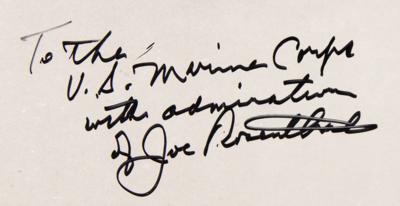 To the
U.S. Marine Corps
with admiration
of Joe Rosenthal